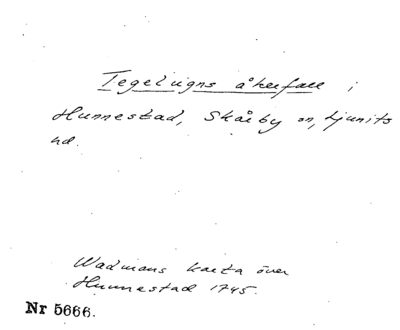 Tegelugns åkerfall i
Hunnestad, Skårby sn, Ljunits
hd.
Wadmans karta över
Hunnestad 1745.
Nr 5666.